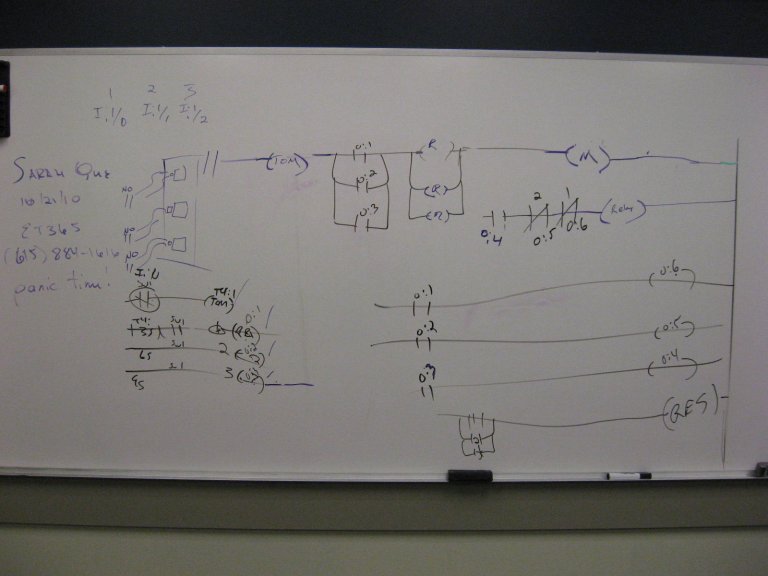 1 2 3
I:1/0 I:1/1 I:1/2
SARAH
10/21/10
ET365
(615) 884-1616
panic time!
NO
NO
NO
(TON)
0:1
0:2
0:3
(R)
(R)
(R)
(M)
2 1
0:4 0:5 0:6
(Relay)
T4:1
(TON)
0:1
3s
6s 2
9s 3
0:1 (0:6)
0:2 (0:5)
0:3 (0:4)
(RES)